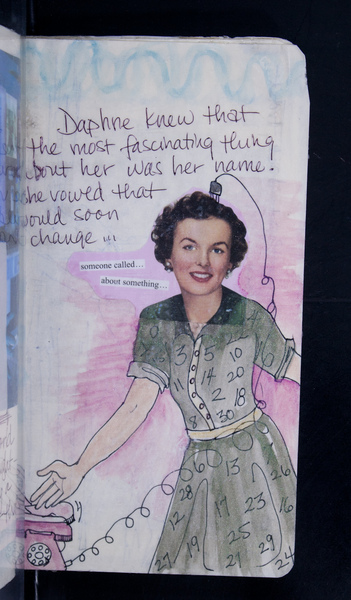 Daphne knew that
the most fascinating thing
about her was her name.
she vowed that
would soon
change ...
someone called...
about something...
0
3 5 10
11 14 2 20
2 18
8 30
6 13 26
28 17 23 16
12 25
27 19 21 29 24